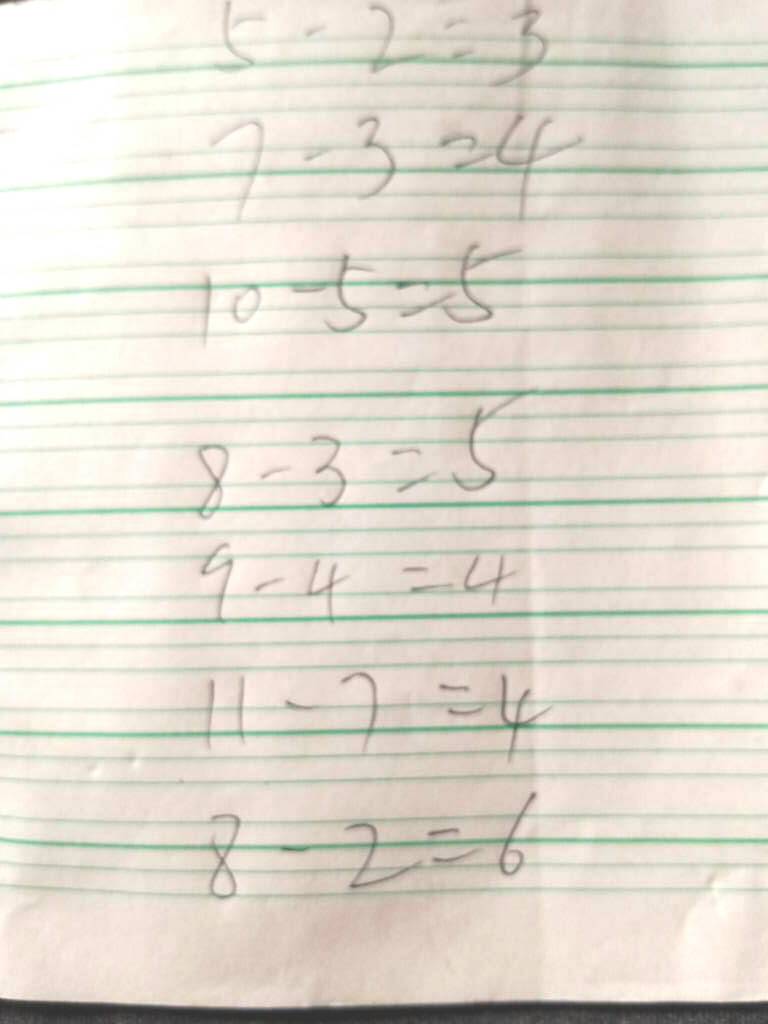 5 - 2 = 3
7 - 3 = 4
10 - 5 = 5
8 - 3 = 5
9 - 4 = 4
11 - 7 = 4
8 - 2 = 6